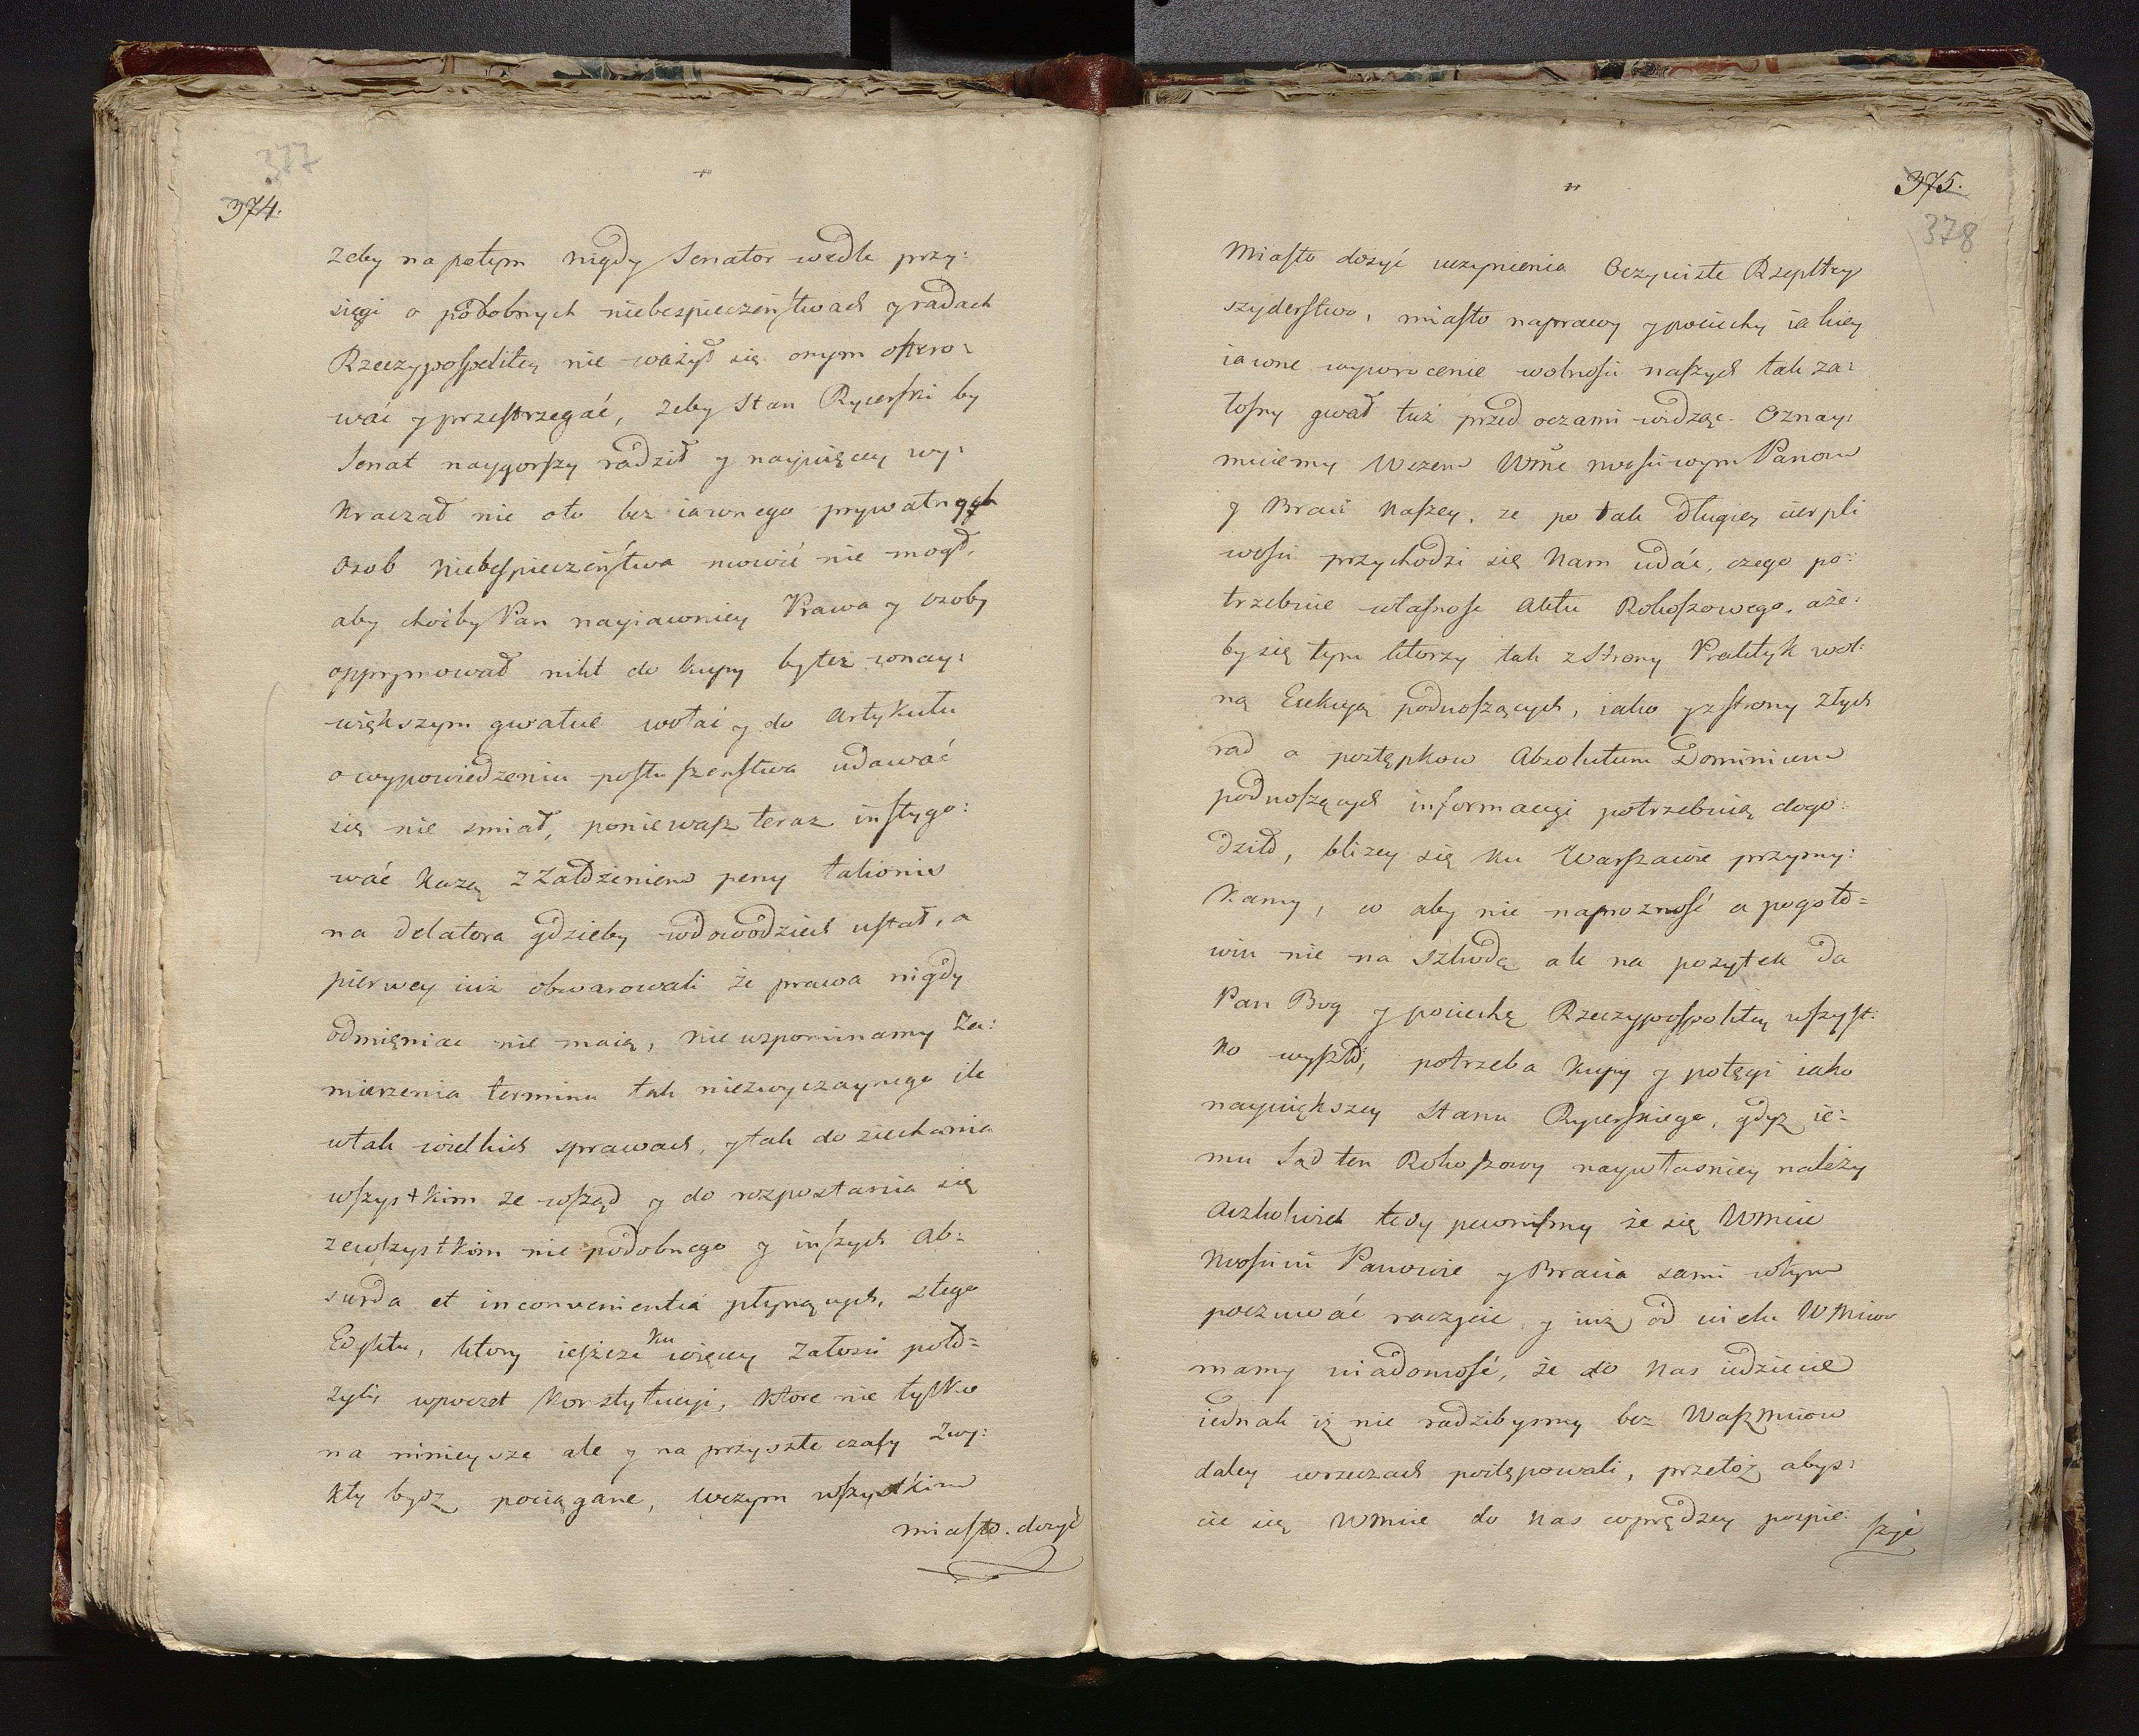 377
374.
żeby na potym nigdy Senator wedle przy:
sięgi o podobnych niebespieczeństwach y radach
Rzeczypospolitey nie ważył się onym ostro:
wać y przestrzegać, żeby Stan Rycerski by
Senat naygorszy radził y naywięcey wy:
kraczał nie oto bez iawnego prywatnych
osob niebespieczeństwa mowić nie mogł,
aby choćby Pan nayiawniey Prawa y osoby
opprymował nikt do kupy by też w nay:
większym gwałcie wołać y do Artykułu
o wypowiedzeniu posłuszeństwa udawać
się nie smiał, poniewasz teraz instygo:
wać każą z załdżeniem peny talionis
na delatora gdzieby w dowodziech ustał, a
pierwey iuż obwarowali że prawa nigdy
odmięniac nie maią, nie wspominamy Za:
mierzenia terminu tak niezwyczaynego ile
w tak wielkich sprawach, y tak do ziechania
wszystkim ze wsząd y do rozpostania się
ze wszystkim nie podobnego y inszych Ab:
surda et inconvenientia płynących, z tego
Edyktu, ktory ieszcze ku więcey żałosci poło=
żyli w poczet Konstytucyi, ktore nie tylko
na nineysze ale y na przyszłe czasy zwy:
kły bydz pociągane, w czym wszystkim
miasto dozyć
375.
378
Miasto dozyć uczynienia Oczywiste Rzeplтеy
szyderstwo, miasto naprawy y pociechy iakiey
iawne wywrocenie wolnosci naszych tak ża:
łosny gwałt tuż przed oczami widząc. Oznay:
muiemy Wszem Wmc mosciwym Panom
y Braci Naszey, że po tak długiey cierpli
wosci przychodzi się Nam udać, czego po:
trzebuie własnosc Aktu Rokoszowego, aże:
by się tym ktorzy tak z Strony Praktyk wol:
ną Elekcyą podnoszących, iako y z strony złych
rad a postępkow Absolutum Dominium
podnoszących informacyi potrzebnią dogo:
dziło, blizey się ku Warszawie przymy:
kamy, co aby nie naprozność a pogoto=
wiu nie na szkodę ale na pozytek da
Pan Bog y pociechę Rzeczypospolitey wszyst:
ko wyszło, potrzeba kupy y potęgi iako
naywiększey Stanu Rycerskiego, gdyż ie:
mu Sąd ten Rokoszowy naywłasniey należy
Aczkolwiek tedy pewnismy że się Wmcie
Mosciwi Panowie y Bracia sami w tym
poczuwać raczycie, y iuż od wielu WMciow
mamy wiadomość, że do Nas idziecie
iednak iż nie radzibysmy bez WaszMciow
daley w rzeczach postępowali, przetoż abys:
cie się Wmcie do Nas coprędzey pospie:
szyć